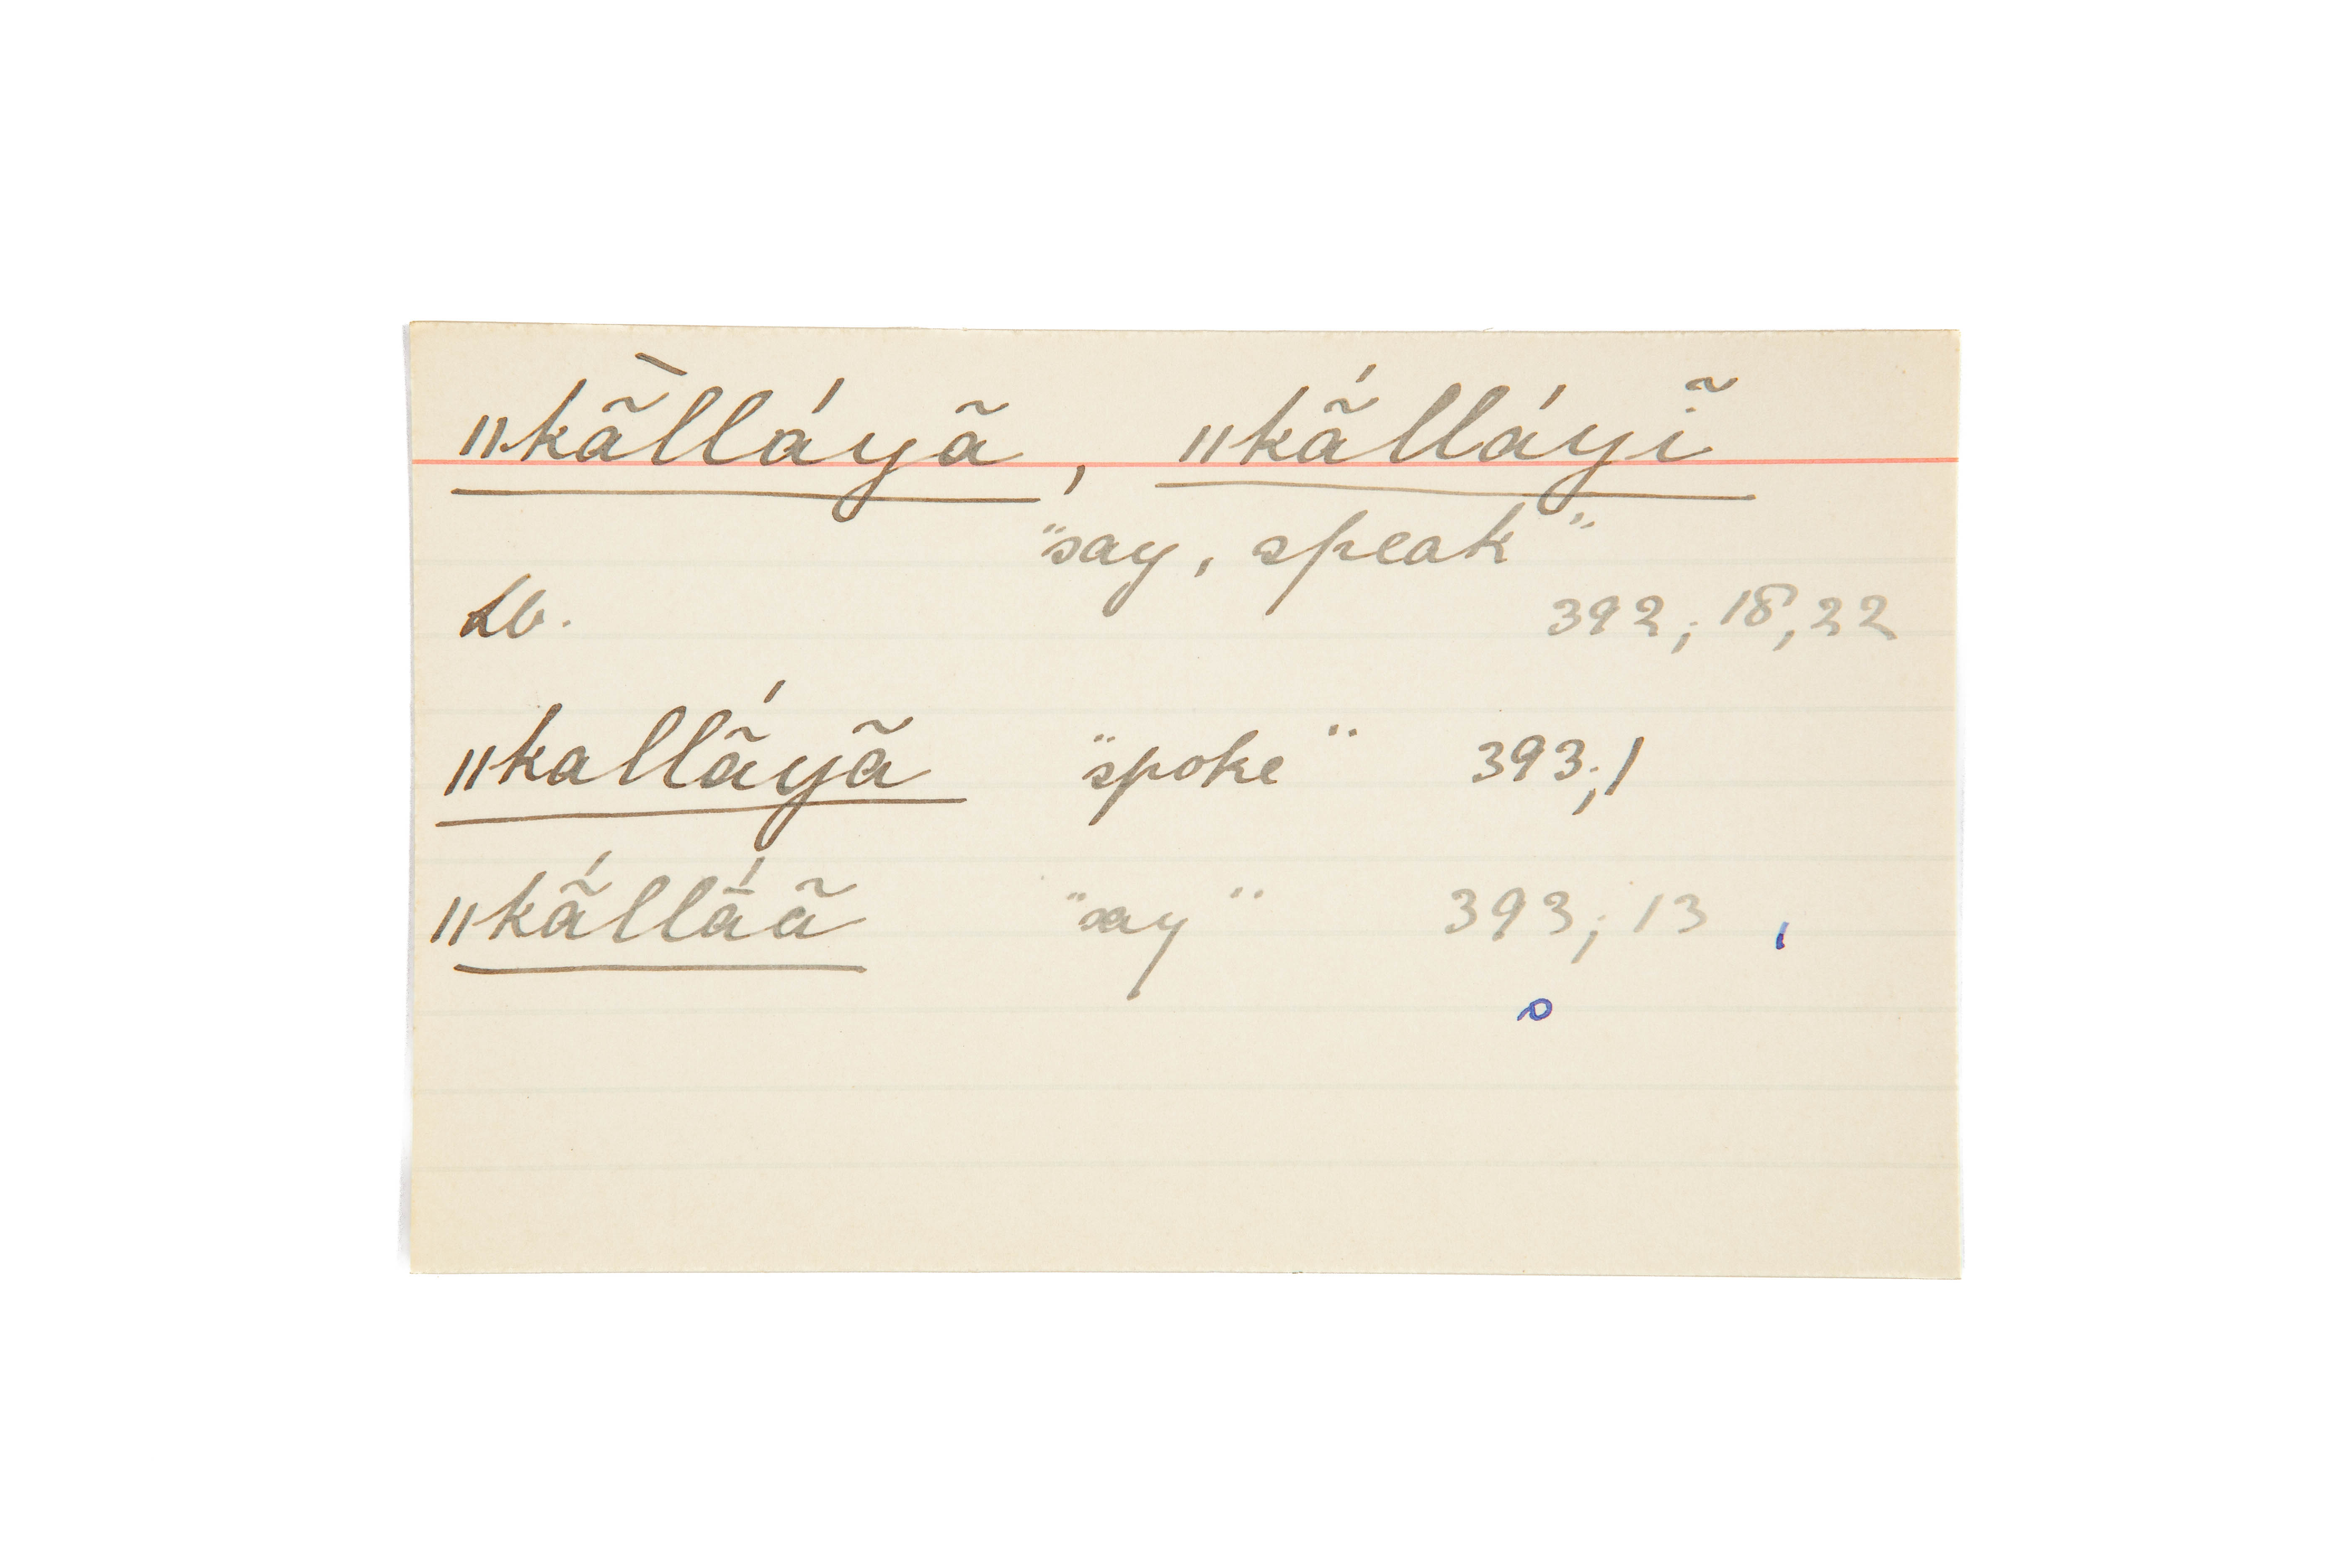 ǁkã̄lláyã, ǁkã́lláyĩ
"say, speak"
Lb. 392; 18, 22
ǁkallã́yã "spoke" 393; 1
ǁkã́llā́ã "say" 393; 13